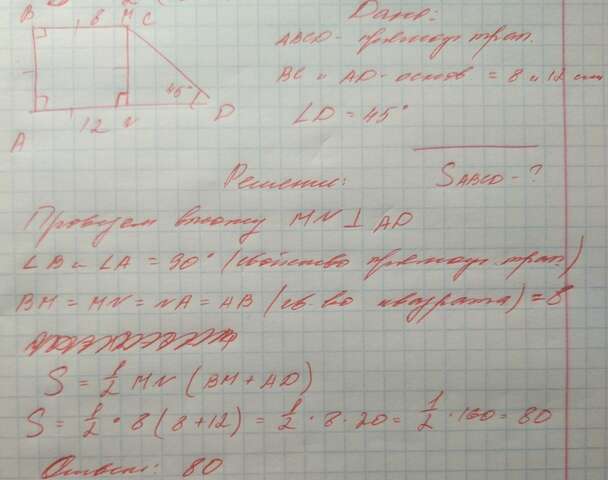 B 8 M C
45°
A 12 N D
Дано:
ABCD - прямоуг. трап.
BC и AD - основ = 8 и 12 см
∠D = 45°
Решение: SABCD - ?
Проведем высоту MN ⊥ AD
∠B и ∠A = 90° (свойство прямоуг. трап.)
BM = MN = NA = AB (св-во квадрата) = 8
S = 1/2 MN (BM + AD)
S = 1/2 · 8 (8 + 12) = 1/2 · 8 · 20 = 1/2 · 160 = 80
Ответ: 80